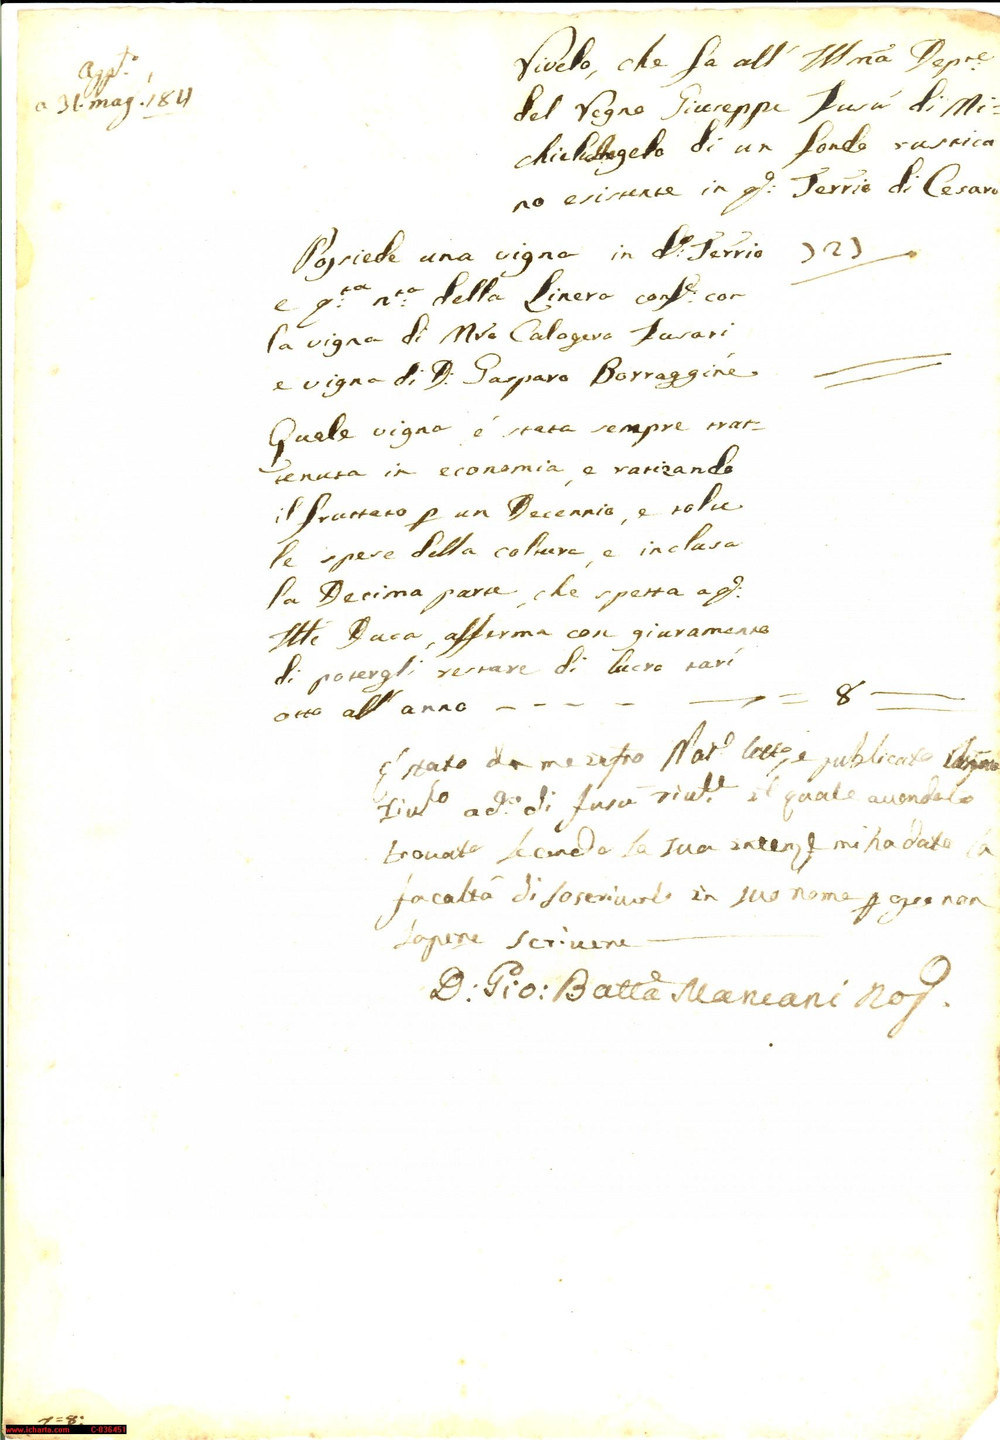 a 31. mag. 1811
Rivelo, che fa all' Ill.ma Dep.ne
del Regno Giuseppe Fusa' di Mi=
chielangelo di un fondo rustica
no esistente in q.o Terr.io di Cesaro
Possiede una vigna in d.o Terr.io )2)
e q.ta n.ta della Linera conf.e con
la vigna di M.ro Calogero Fusari
e vigna di D: Gasparo Borraggine.
Quale vigna è stata sempre trat=
tenuta in economia, e ratizando
il fruttato p un Decennio, e tolte
le spese della coltura, e inclusa
la Decima parte, che spetta a q.o
Ill.e Duca, afferma con giuramento
di potergli restare di lucro tarì
otto all' anno - - - - — = 8 =
È stato da me infro Not.o letto, e publicato
Riv.lo a d.o di Fusa' Riv.te il quale avendolo
trovato secondo la sua intenz.e mi ha dato la
facoltà di soscriverlo in suo nome p esso non
sapere scrivere
D: Gio: Batt.a Mancani No.
7=8:
www.icharta.com C-036451